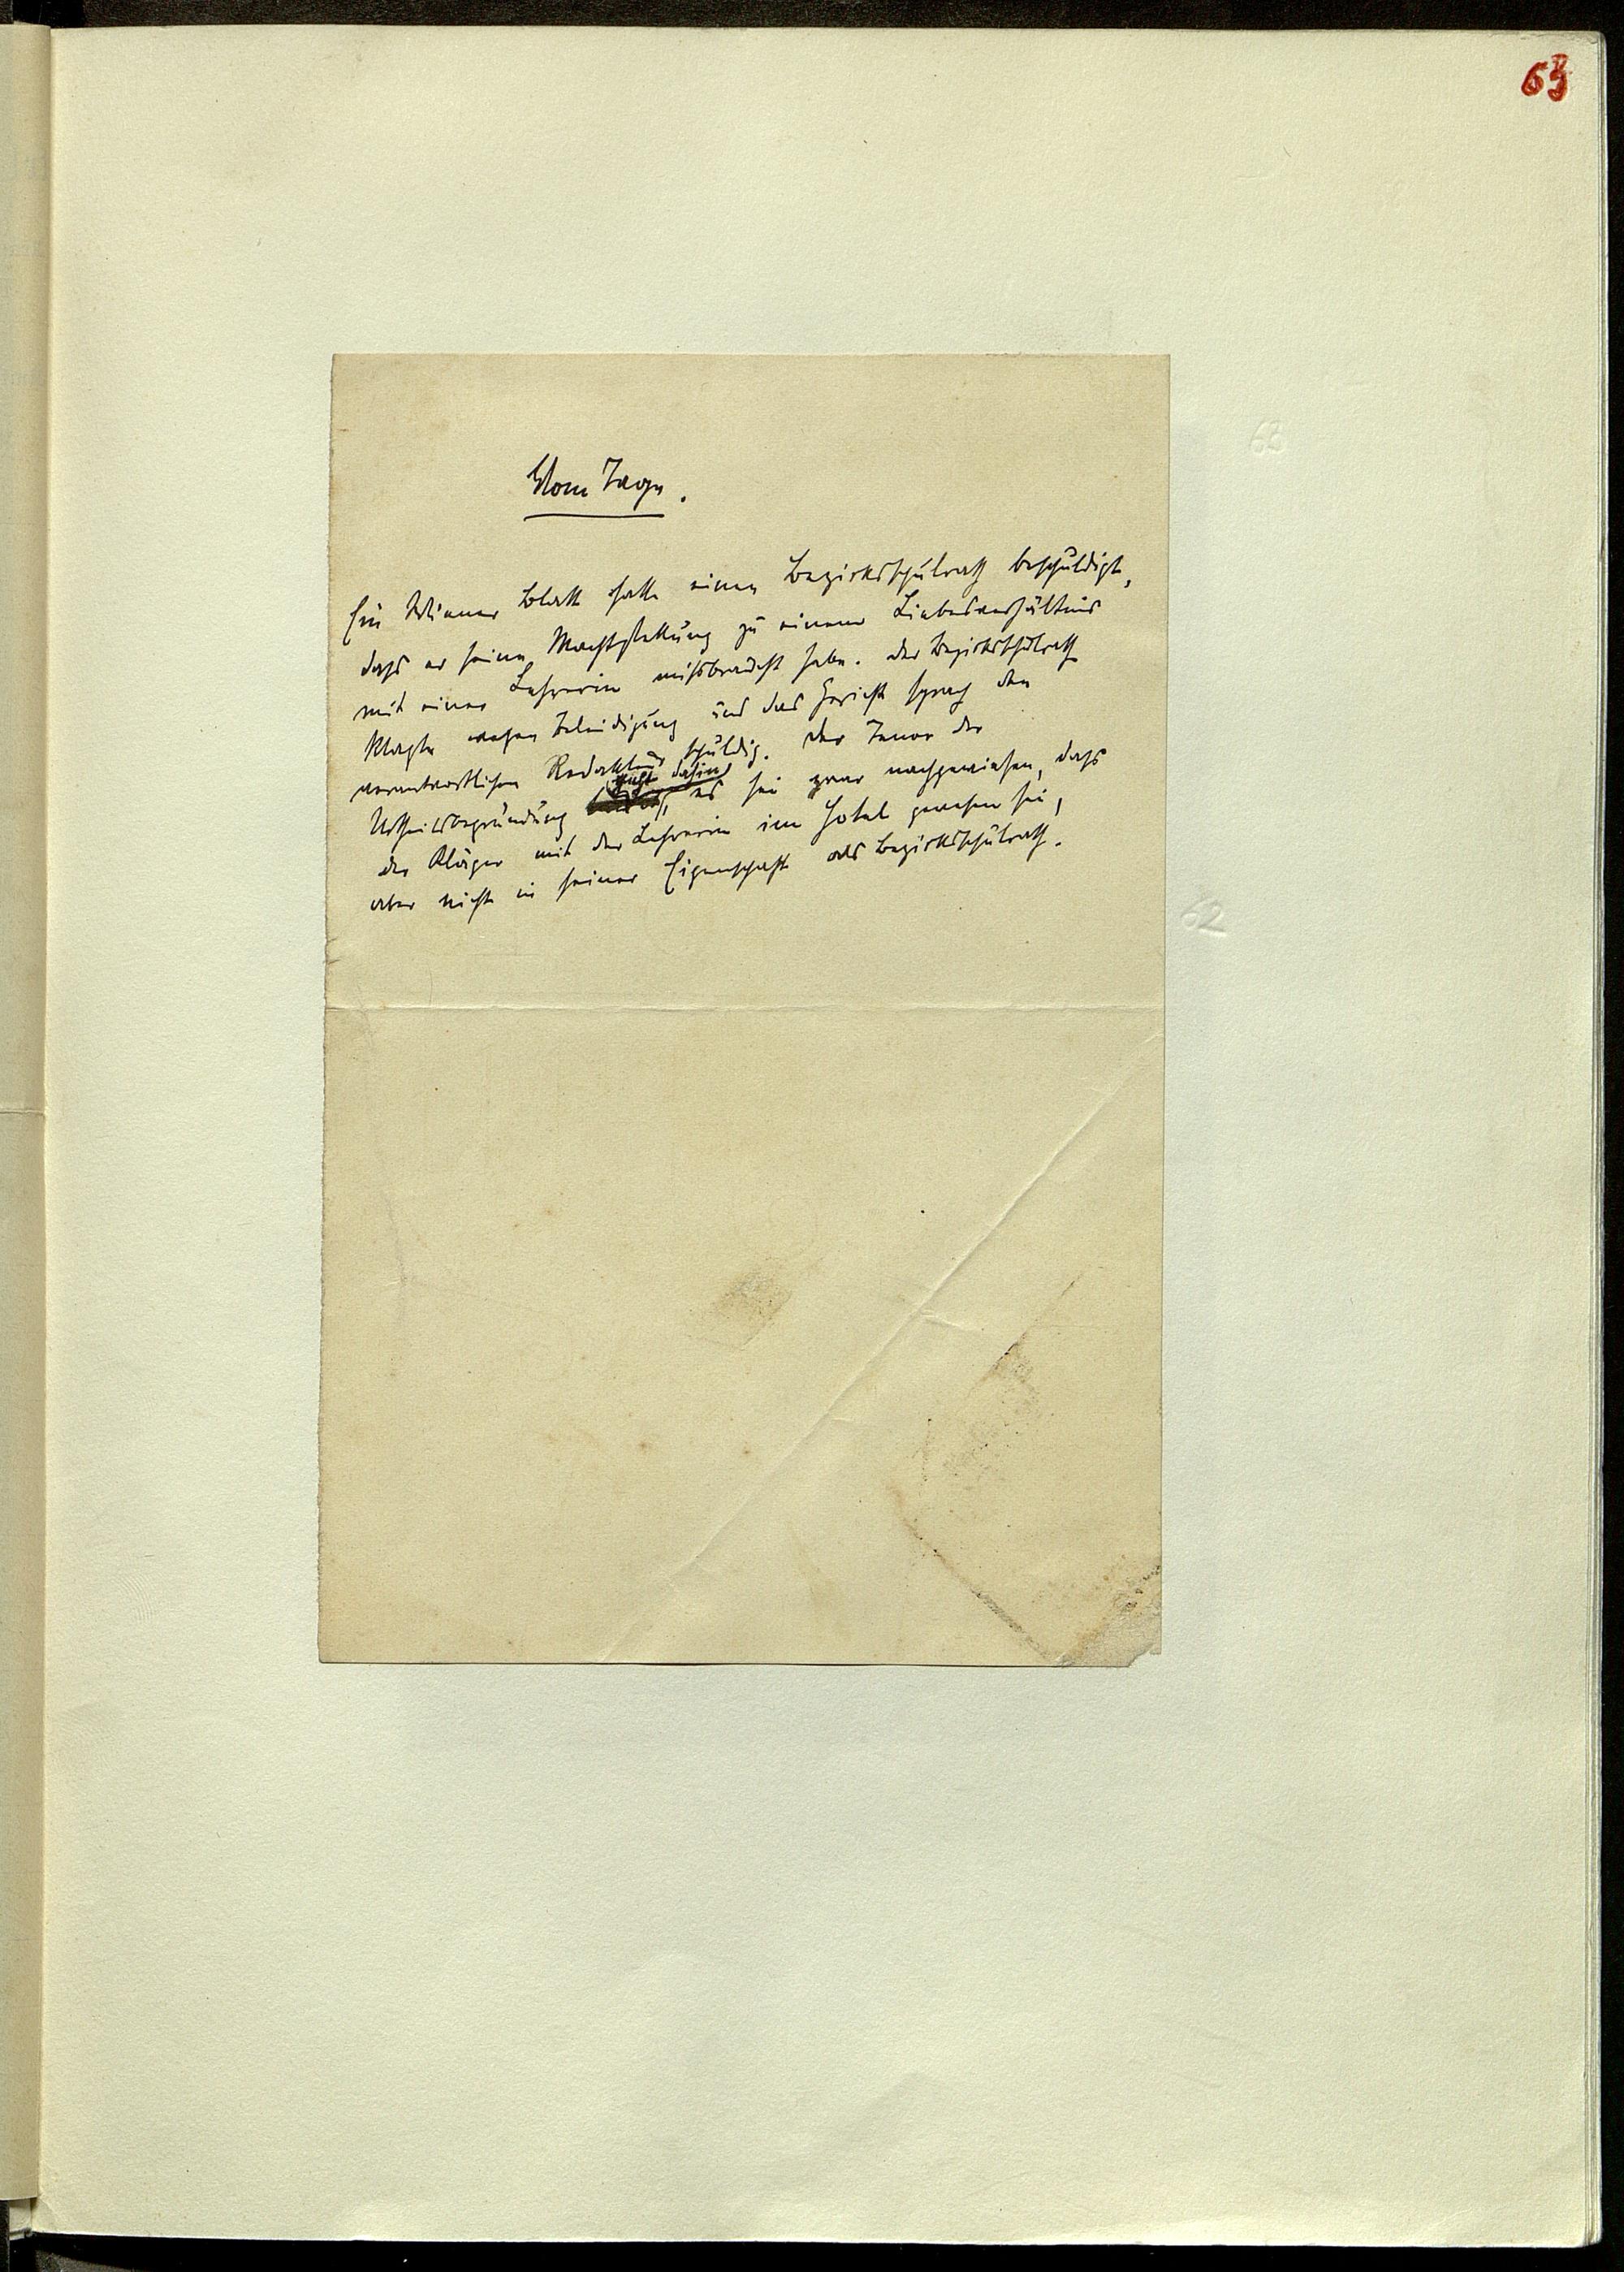 63
Vom Tage.
Ein Wiener Blatt hatte einen Bezirksschulrath beschuldigt,
dass er seine Machtstellung zu einem Liebesverhältnis
mit einer Lehrerin missbraucht habe. Der Bezirksschulrath
klagte wegen Beleidigung und das Gericht sprach den
verantwortlichen Redakteur schuldig. Der Tenor der
geht dahin
Urtheilsbegründung, es sei zwar nachgewiesen, dass
der Kläger mit der Lehrerin im Hotel gewesen sei,
aber nicht in seiner Eigenschaft als Bezirksschulrath.
63
62